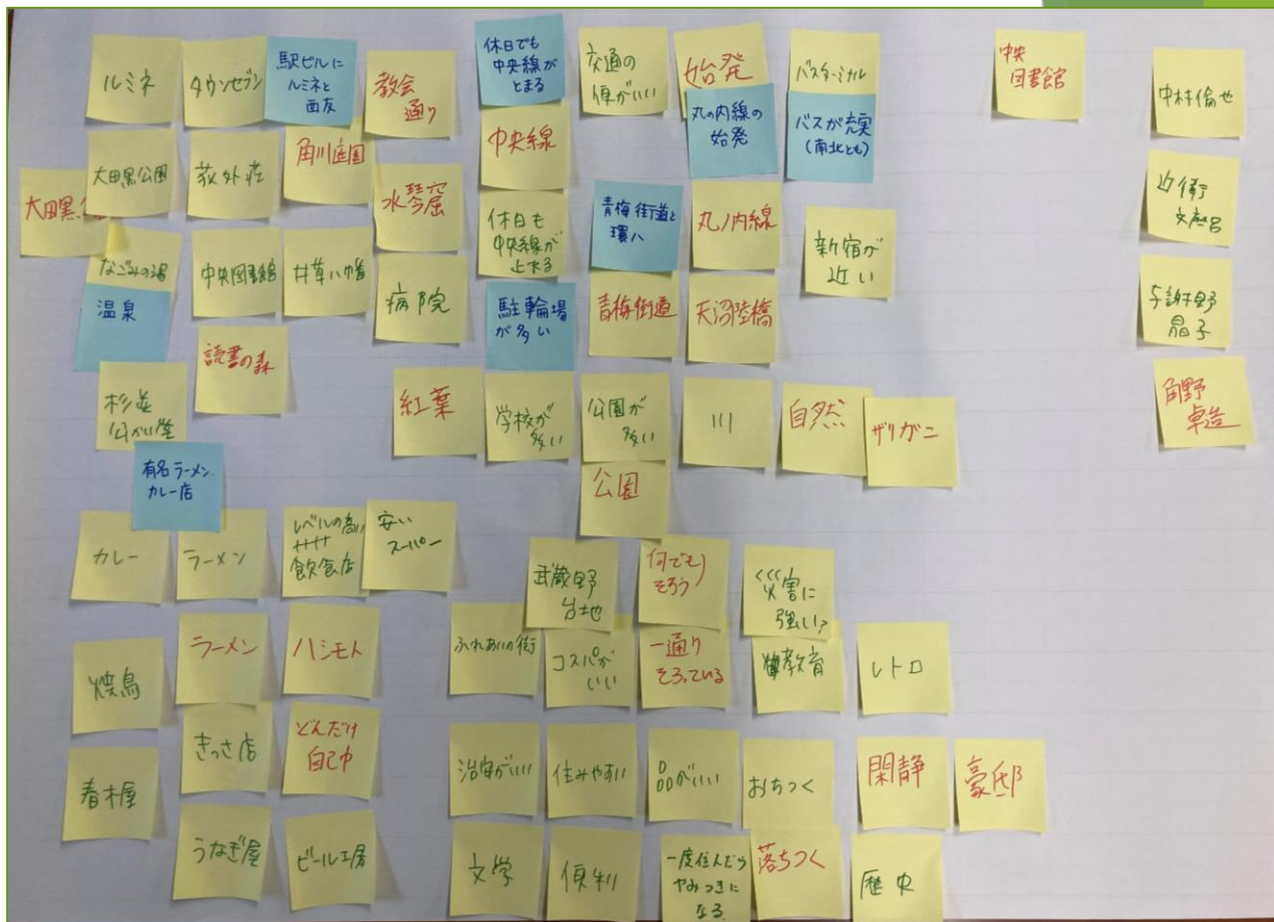 ルミネ
タウンセブン
駅ビルに
ルミネと
西友
教会
通り
休日でも
中央線が
とまる
交通の
便がいい
始発
バスターミナル
中央
図書館
中村倫也
大田黒公園
荻外荘
角川庭園
中央線
丸の内線の
始発
バスが充実
(南北とも)
大田黒
水琴窟
休日も
中央線が
止まる
青梅街道と
環八
丸ノ内線
新宿が
近い
近衛
文麿呂
なごみの湯
温泉
中央図書館
井草八幡
病院
駐輪場
が多い
青梅街道
天沼陸橋
与謝野
晶子
読書の森
杉並
公かい堂
紅葉
学校が
多い
公園が
多い
川
自然
ザリガニ
角野
卓造
有名ラーメン、
カレー店
公園
カレー
ラーメン
レベルの高い
飲食店
安い
スーパー
武蔵野
台地
何でも
そろう
災害に
強い?
焼鳥
ラーメン
ハシモト
ふれあいの街
コスパが
いい
一通り
そろっている
教育
レトロ
春木屋
きっさ店
どんだけ
自己中
治安がいい
住みやすい
品がいい
おちつく
閑静
豪邸
うなぎ屋
ビール工房
文学
便利
一度住んだら
やみつきに
なる
落ちつく
歴史